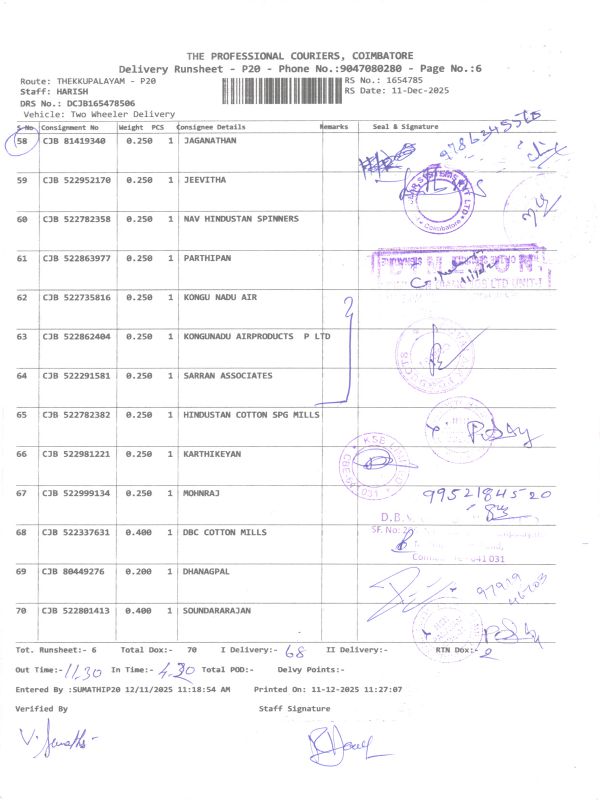 THE PROFESSIONAL COURIERS, COIMBATORE
Delivery Runsheet - P20 - Phone No.:9047080280 - Page No.:6
Route: THEKKUPALAYAM - P20 RS No.: 1654785
Staff: HARISH RS Date: 11-Dec-2025
DRS No.: DCJB165478506
Vehicle: Two Wheeler Delivery
S No Consignment No Weight PCS Consignee Details Remarks Seal & Signature
58 CJB 81419340 0.250 1 JAGANATHAN
59 CJB 522952170 0.250 1 JEEVITHA
60 CJB 522782358 0.250 1 NAV HINDUSTAN SPINNERS
61 CJB 522863977 0.250 1 PARTHIPAN
62 CJB 522735816 0.250 1 KONGU NADU AIR
63 CJB 522862404 0.250 1 KONGUNADU AIRPRODUCTS P LTD
64 CJB 522291581 0.250 1 SARRAN ASSOCIATES
65 CJB 522782382 0.250 1 HINDUSTAN COTTON SPG MILLS
66 CJB 522981221 0.250 1 KARTHIKEYAN
67 CJB 522999134 0.250 1 MOHNRAJ 9952184520
68 CJB 522337631 0.400 1 DBC COTTON MILLS
69 CJB 80449276 0.200 1 DHANAGPAL
70 CJB 522801413 0.400 1 SOUNDARARAJAN
Tot. Runsheet:- 6 Total Dox:- 70 I Delivery:- 68 II Delivery:- RTN Dox:- 2
Out Time:- 11.30 In Time:- 4.30 Total POD:- Delvy Points:-
Entered By :SUMATHIP20 12/11/2025 11:18:54 AM Printed On: 11-12-2025 11:27:07
Verified By Staff Signature